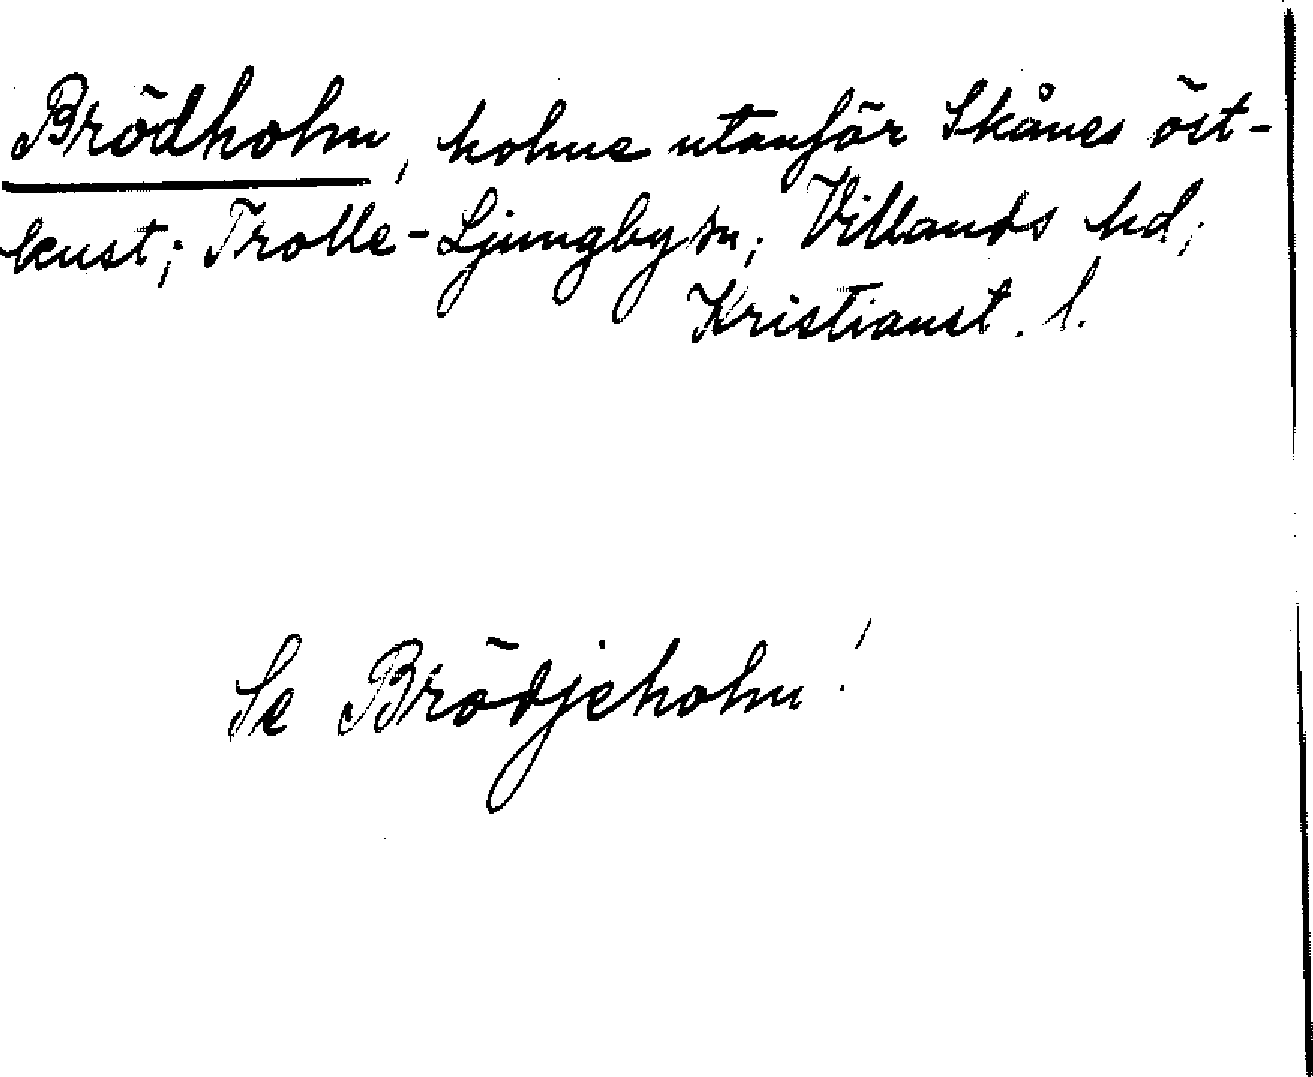 Brödholm, holme utanför Skånes öst-
kust; Trolle-Ljungby sn; Villands hd;
Kristianst. l.
Se Brödjeholm!